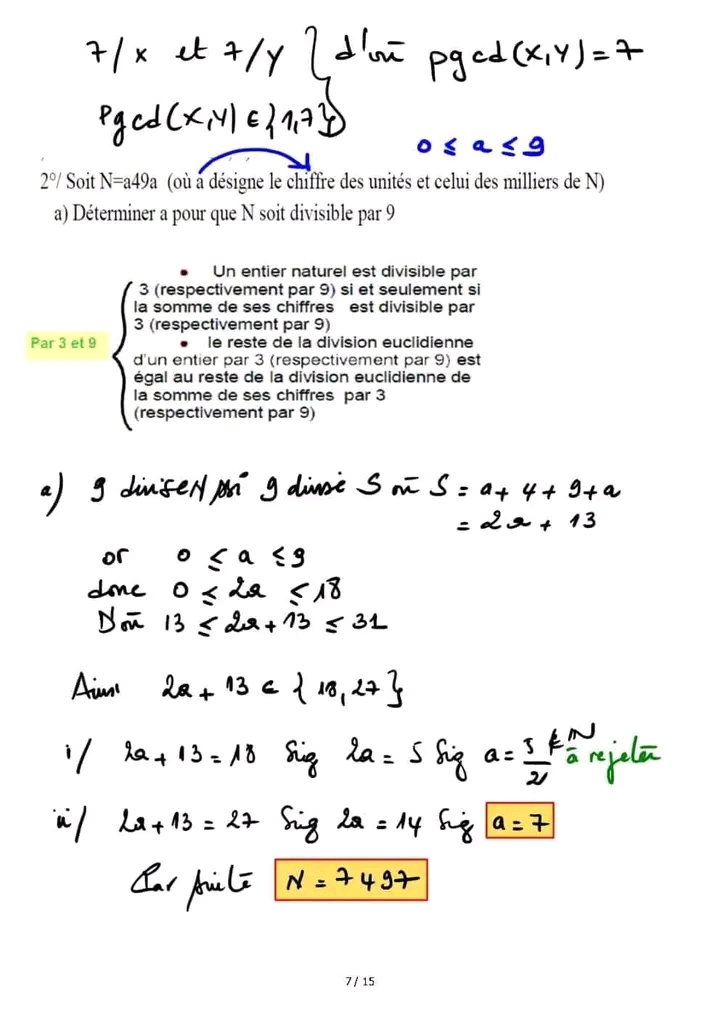 7/x et 7/y } d'où pgcd(x,y) = 7
Pgcd(x,y) ∈ {1,7}
0 ≤ a ≤ 9
2°/ Soit N=a49a (où a désigne le chiffre des unités et celui des milliers de N)
a) Déterminer a pour que N soit divisible par 9
• Un entier naturel est divisible par
3 (respectivement par 9) si et seulement si
la somme de ses chiffres est divisible par
3 (respectivement par 9)
Par 3 et 9
• le reste de la division euclidienne
d'un entier par 3 (respectivement par 9) est
égal au reste de la division euclidienne de
la somme de ses chiffres par 3
(respectivement par 9)
a) 9 divise N ssi 9 divise S où S = a + 4 + 9 + a
= 2a + 13
or 0 ≤ a ≤ 9
donc 0 ≤ 2a ≤ 18
D'où 13 ≤ 2a + 13 ≤ 31
Ainsi 2a + 13 ∈ { 18, 27 }
i/ 2a + 13 = 18 Sig 2a = 5 Sig a = 5/2 ∉ ℕ à rejeter
ii/ 2a + 13 = 27 Sig 2a = 14 Sig a = 7
Par suite N = 7497
7 / 15